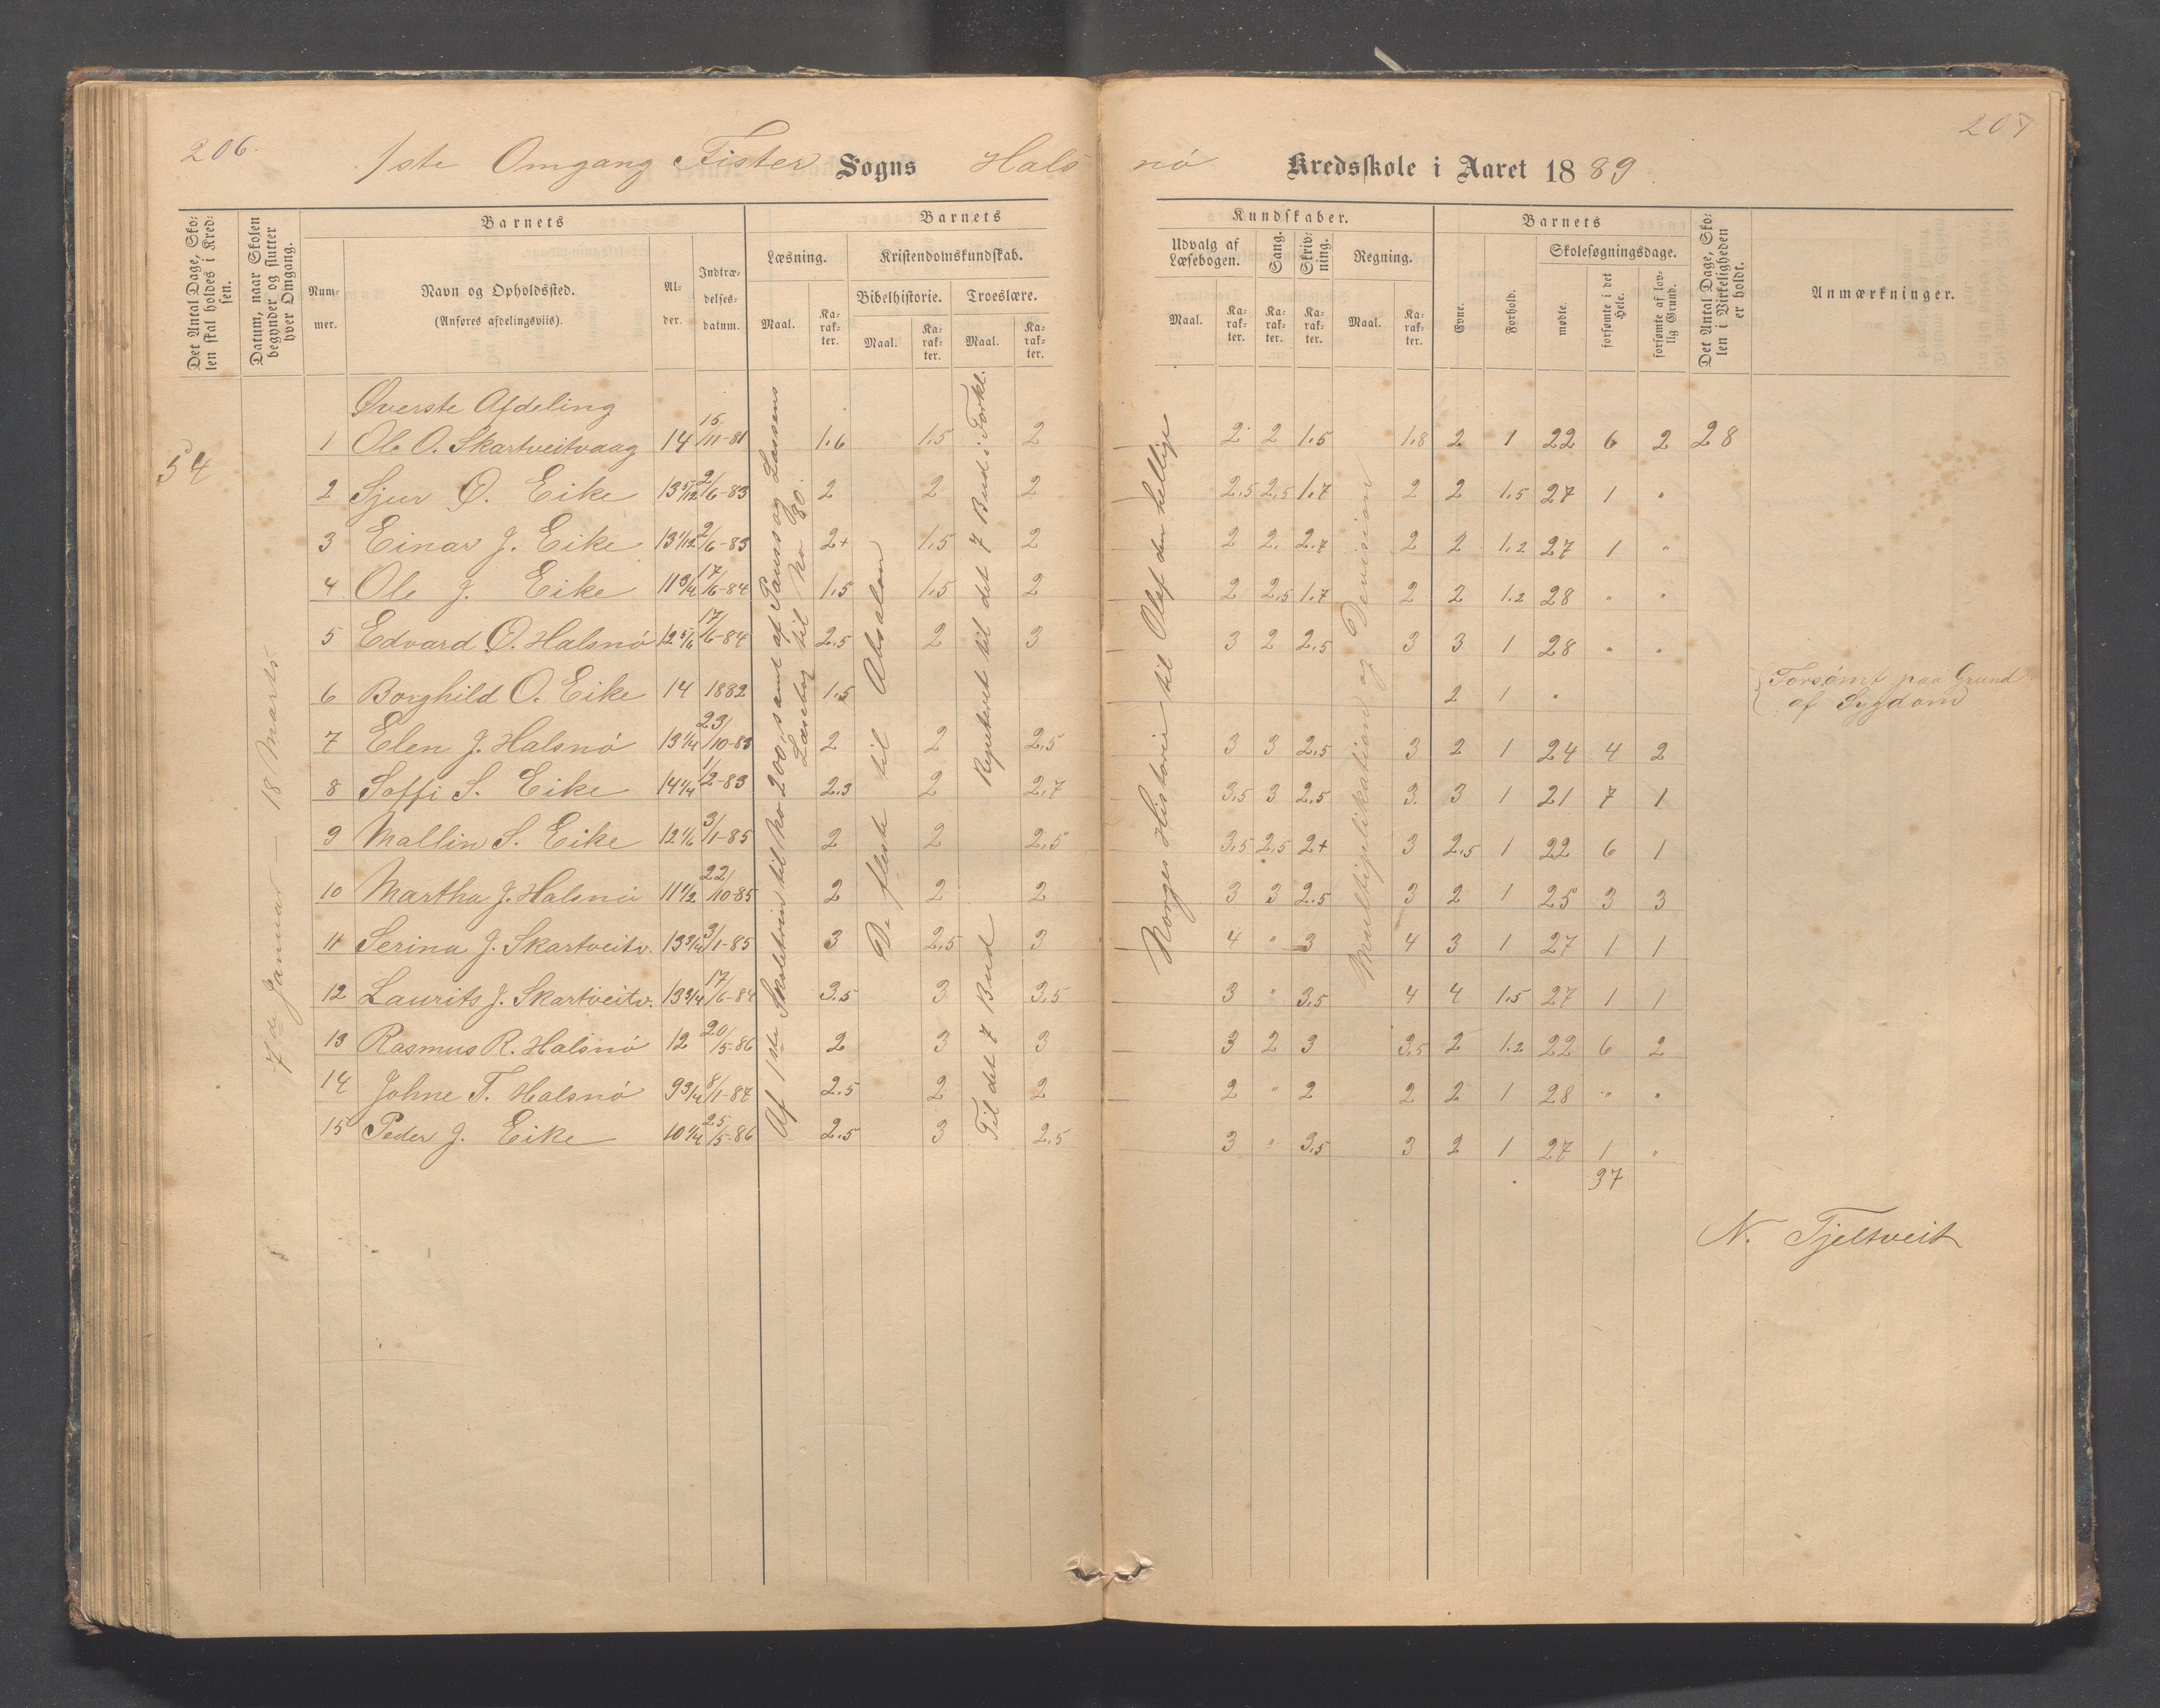 206.
207
1ste Omgang Fister Sogns Halsnö Kredsskole i Aaret 1889.
Det Antal Dage, Skolen skal holdes i Kredsen.
Datum, naar Skolen begynder og slutter hver Omgang.
Barnets
Nummer.
Navn og Opholdssted.
(Anføres afdelingsviis).
Alder.
Indtrædelsesdatum.
Barnets Kundskaber.
Læsning. Maal. Karakter.
Kristendomskundskab.
Bibelhistorie. Maal. Karakter.
Troeslære. Maal. Karakter.
Udvalg af Læsebogen. Maal. Karakter.
Sang. Karakter.
Skrivning. Karakter.
Regning. Maal. Karakter.
Barnets
Evne. Forhold.
Skolesøgningsdage.
mødte. forsømte i det Hele. forsømte af lovlig Grund.
Det Antal Dage, Skolen i Virkeligheden er holdt.
Anmærkninger.
54
7de Januar — 18 Marts
Øverste Afdeling
1 Ole O. Skartveitvaag 14 15/11-81 1.6 1.5 2 2 2 1.5 1.8 2 1 22 6 2 28
2 Sjur O. Eike 13 5/12 2/6-83 2 2 2 2.5 2.5 1.7 2 2 1.5 27 1 "
3 Einar J. Eike 13 1/12 2/6-83 2+ 1.5 2 2 2. 2.7 2 2 1.2 27 1 "
4 Ole J. Eike 11 3/4 17/6-84 1.5 1.5 2 2 2.5 1.7 2 2 1.2 28 " "
5 Edvard O. Halsnö 12 5/6 17/6-84 2.5 2 3 3 2 2.5 3 3 1 28 " "
6 Borghild O. Eike 14 1882 1.5 2 1 " Forsømt paa Grund af Sygdom
7 Elen J. Halsnö 13 1/4 23/10-83 2 2 2.5 3 3 2.5 3 2 1 24 4 2
8 Soffi S. Eike 14 1/4 1/2-83 2.3 2 2.7 3.5 3 2.5 3. 3 1 21 7 1
9 Mallin S. Eike 12 1/6 3/1-85 2 2 2.5 3.5 2.5 2+ 3 2.5 1 22 6 1
10 Martha J. Halsnö 11 1/2 22/10-85 2 2 2 3 3 2.5 3 2 1 25 3 3
11 Serina J. Skartveitv. 13 3/4 3/1-85 3 2.5 3 4 " 3 4 3 1 27 1 1
12 Laurits J. Skartveitv. 13 3/4 17/6-84 3.5 3 3.5 3 " 3.5 4 4 1.5 27 1 1
13 Rasmus R. Halsnö 12 20/5-86 2 3 3 3 2 3 3.5 2 1.2 22 6 2
14 Johne T. Halsnö 9 3/4 8/1-87 2.5 2 2 2 " 2 2 2 1 28 " "
15 Peder J. Eike 10 1/4 25/5-86 2.5 3 2.5 3 " 3.5 3 2 1 27 1 "
37
Af 1ste Skoletrin til No 200, samt af Pauss og Lassens
Læsebog til No 80.
De fleste til Absalon
Til det 7 Bud Repeteret til det 7 Bud i Forkl.
Norges Historie til Olaf den hellige
Multiplikation og Devisian
N. Tjeltveit